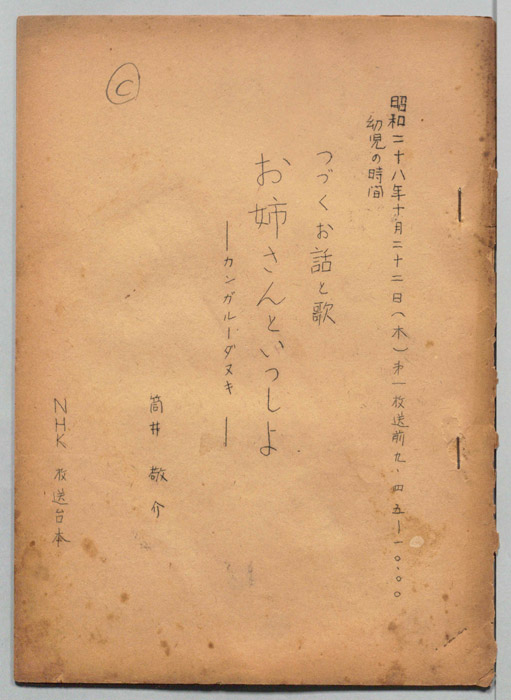 昭和二十八年十月二十二日（木）第一放送前九、四五ー一〇、〇〇
幼児の時間
つづくお話と歌
お姉さんといっしよ
ーカンガルーダヌキー
筒井敬介
NHK 放送台本
C